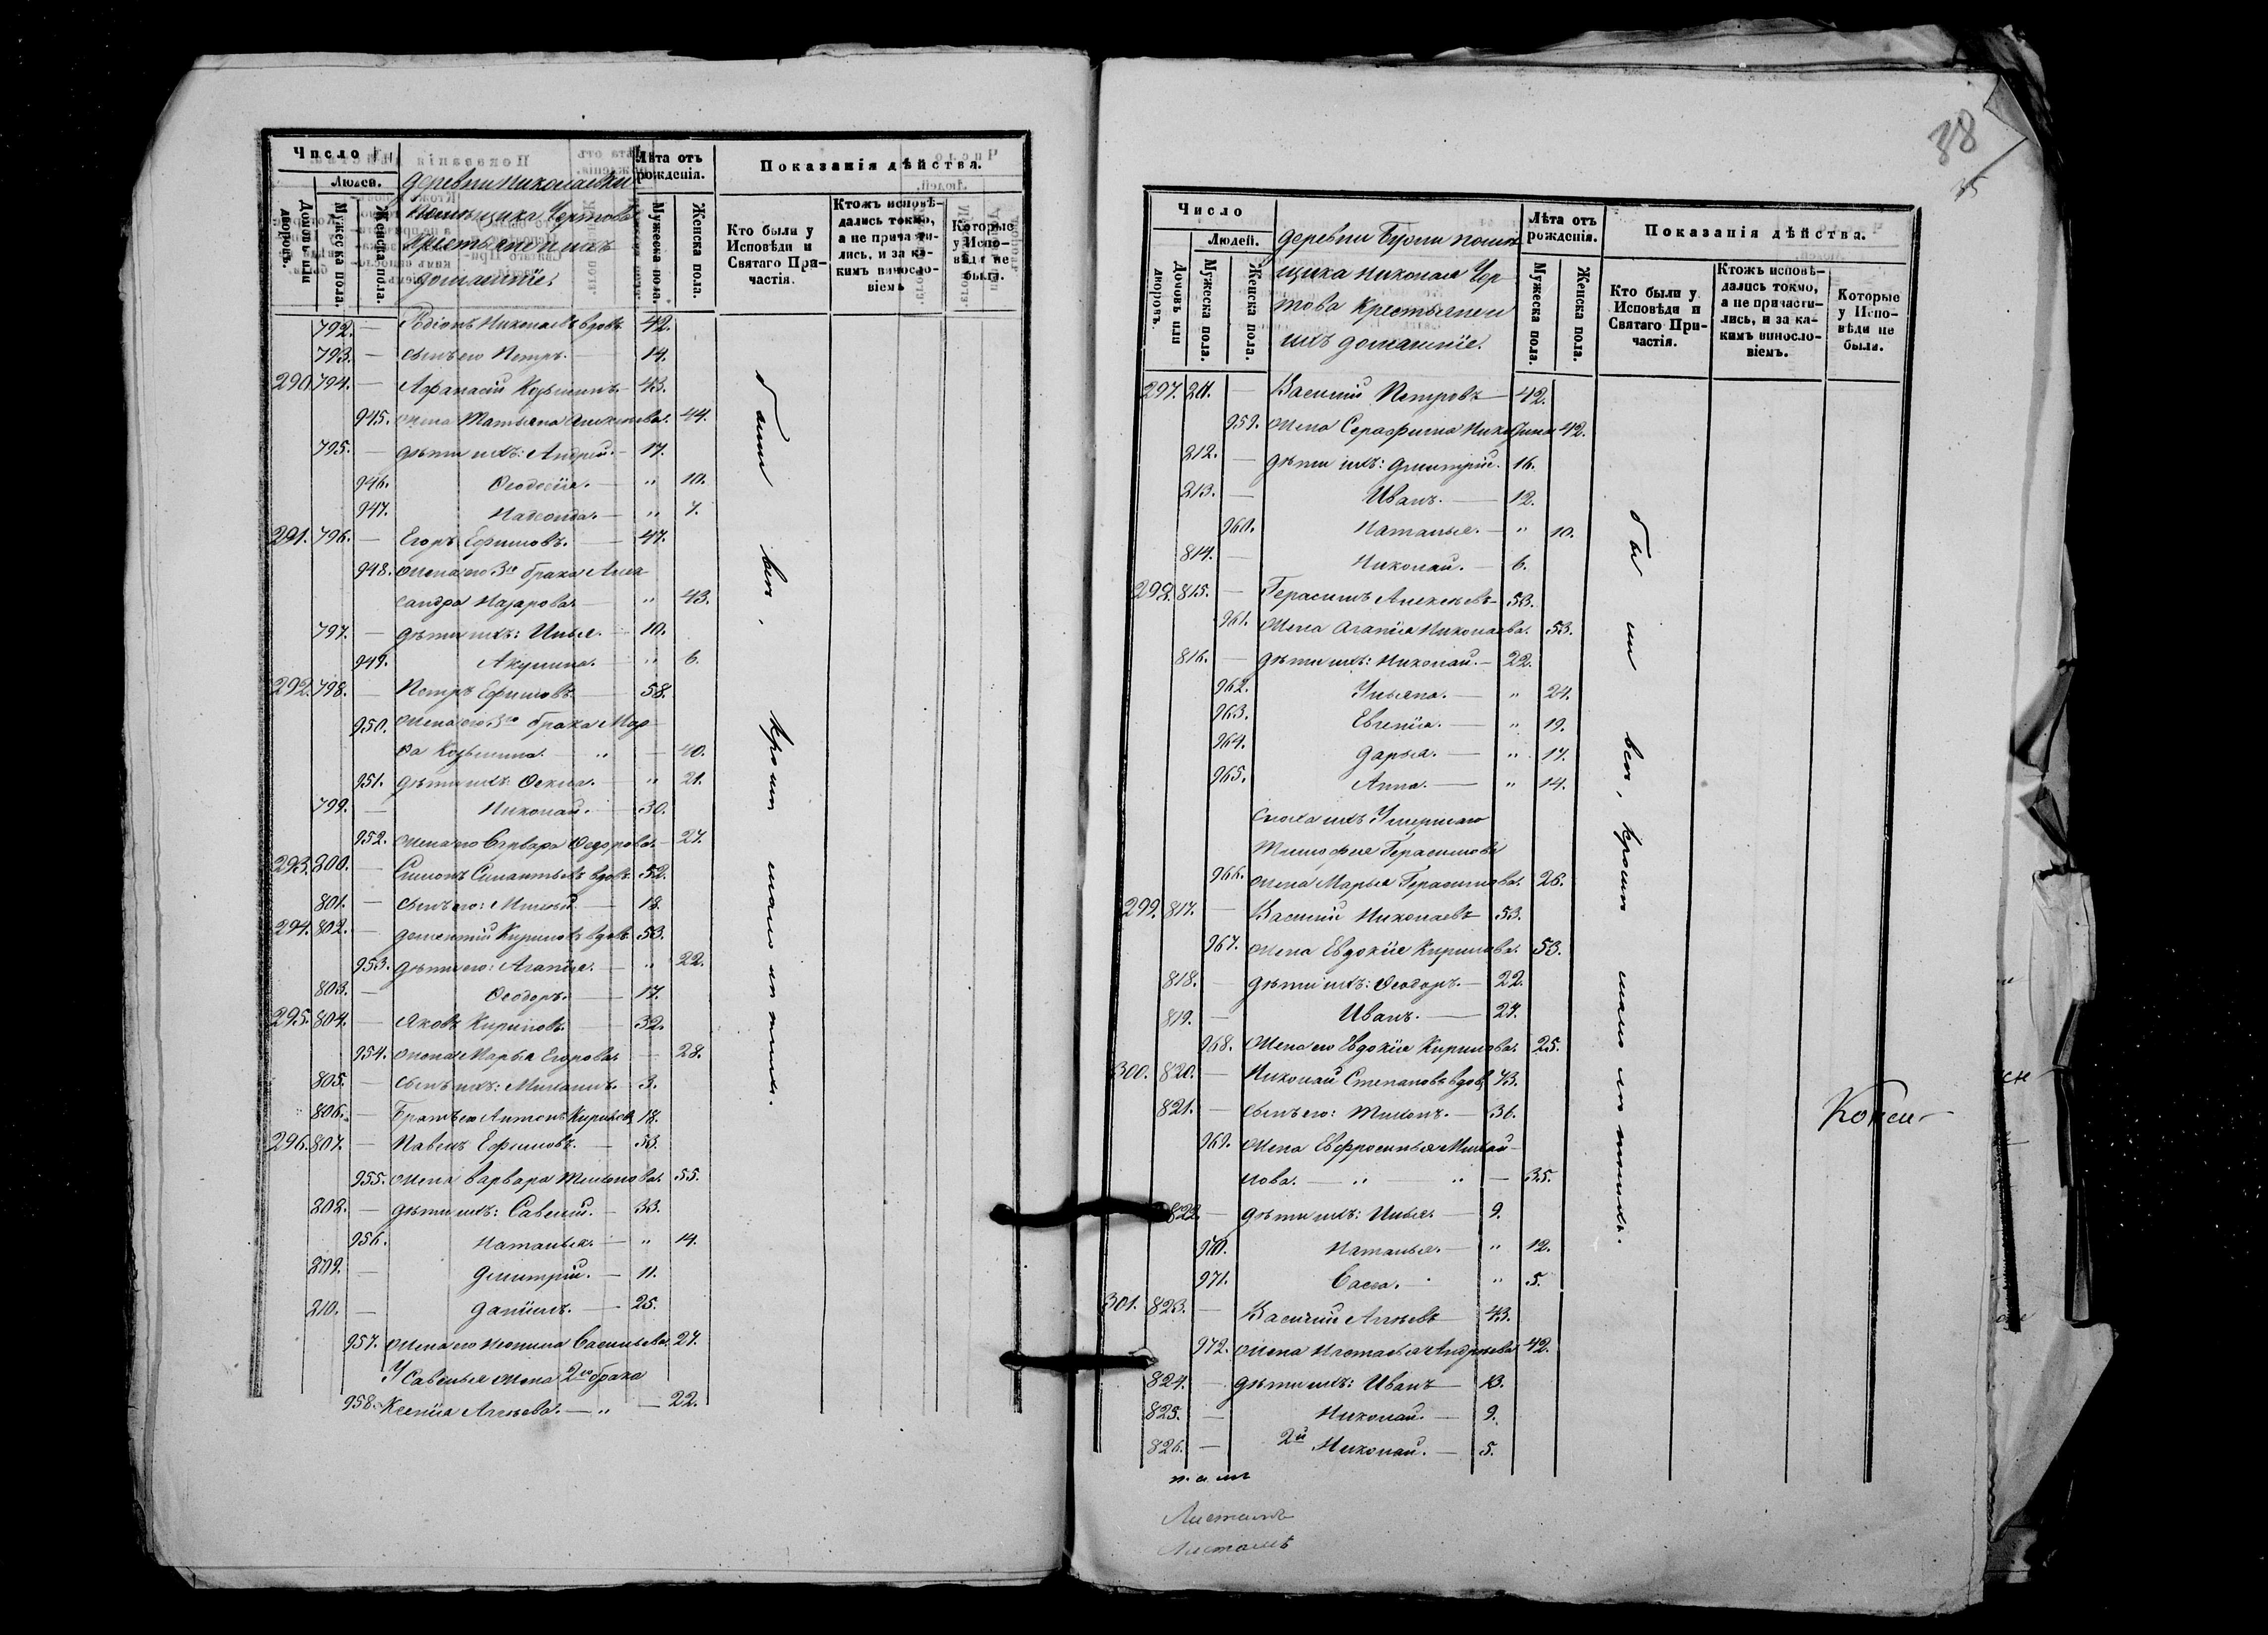 Число
Людей.
Домовъ или дворовъ.
Мужеска пола.
Женска пола.
деревни Николаевки
Помѣщика Чертова
Крестьяне и ихъ
домашніе.
Лѣта отъ рожденія.
Мужеска пола.
Женска пола.
Показанія дѣйства.
Кто были у Исповѣди и Святаго Причастія.
Ктожъ исповѣдались токмо, а не причастились, и за какимъ винословіемъ
Которые у Исповѣди не были.
792. — Родіонъ Николаевъ вдовъ 42.
793. — сынъ его Петръ. — 14.
290. 794. — Афанасій Козьминъ. — 43.
945. жена Татьяна Алексѣева. 44.
795. — дѣти ихъ: Андрей. — 17.
946. Феодосія. — " 10.
947. Надежда. — " 7.
291. 796. — Егоръ Ефимовъ. — 47.
948. жена его 3го брака Алек
сандра Назарова. — " 43.
797. — дѣти ихъ: Илья. — 10.
949. Акулина. — " 6.
292. 798. — Петръ Ефимовъ. — 58.
950. жена его 3го брака Мар
фа Козьмина. — " — 40.
951. дѣти ихъ: Фекла. — " 21.
799. — Николай. — 30.
952. жена его Варвара Федорова. — 27.
293. 800. — Симонъ Силантьевъ вдовъ. 52.
801. — сынъ его: Михаилъ. — 13.
294. 802. — Дементій Кириловъ вдовъ. 53.
953. дѣти его: Агапія. — " 22.
803. — Феодоръ. — 17.
295. 804. — Яковъ Кириловъ. — 32.
954. жена Марья Егорова. — 28.
805. — сынъ ихъ: Михаилъ. — 3.
806. — Братъ его Антонъ Кириловъ 18.
296. 807. — Павелъ Ефимовъ. — 53.
955. жена Варвара Тихонова. 55.
808. — дѣти ихъ: Савелій. — 33.
956. Наталья. — " 14.
809. — Дмитрій. — 11.
810. — Даніилъ. — 25.
957. жена его Неонила Васильева. 27.
У Савелья жена 2го брака
958. Ксенія Агѣева. — " — 22.
были всѣ, кромѣ мало лѣтнихъ.
38
35
Число
Людей.
Домовъ или дворовъ.
Мужеска пола.
Женска пола.
деревни помѣ
щика Николая Чер
това Крестьяне и
ихъ домашніе.
Лѣта отъ рожденія.
Мужеска пола.
Женска пола.
Показанія дѣйства.
Кто были у Исповѣди и Святаго Причастія.
Ктожъ исповѣдались токмо, а не причастились, и за какимъ винословіемъ.
Которые у Исповѣди не были.
297. 811. — Василій Петровъ — 42.
959. жена Серафима 42.
812. — дѣти ихъ: Дмитрій. 16.
813. — Иванъ. — 12.
960. Наталья. — " 10.
814. — Николай. — 6.
298. 815. — Герасимъ Алексѣевъ — 53.
961. жена Агапія Николаева. 53.
816. — дѣти ихъ: Николай. — 22.
962. Ульяна. — " 24.
963. Евгенія. — " 19.
964. Дарья. — " 17.
965. Анна. — " 14.
Сноха ихъ Умершаго
Тимофея Герасимова
966. жена Марья Герасимова. 26.
299. 817. — Василій Николаевъ 53.
967. жена Евдокія Кирилова. 53.
818. — дѣти ихъ: Феодоръ. — 22.
819. — Иванъ. — 27.
968. жена его Евдокія Кирилова. 25.
300. 820. — Николай Степановъ вдов. 73.
821. — сынъ его: Тихонъ. — 36.
969. жена Евфросинья Михай
лова. — " " — 35.
822. — дѣти ихъ: Илья. — 9.
970. Наталья. — " 12.
971. Васса. — " 5.
301. 823. — Василій Агѣевъ 43.
972. жена Настасья Андреева 42.
824. — дѣти ихъ: Иванъ — 13.
825. — Николай. — 9.
826. — 2й Николай. — 5.
были всѣ, кромѣ мало лѣтнихъ.
Листамъ
Листамъ